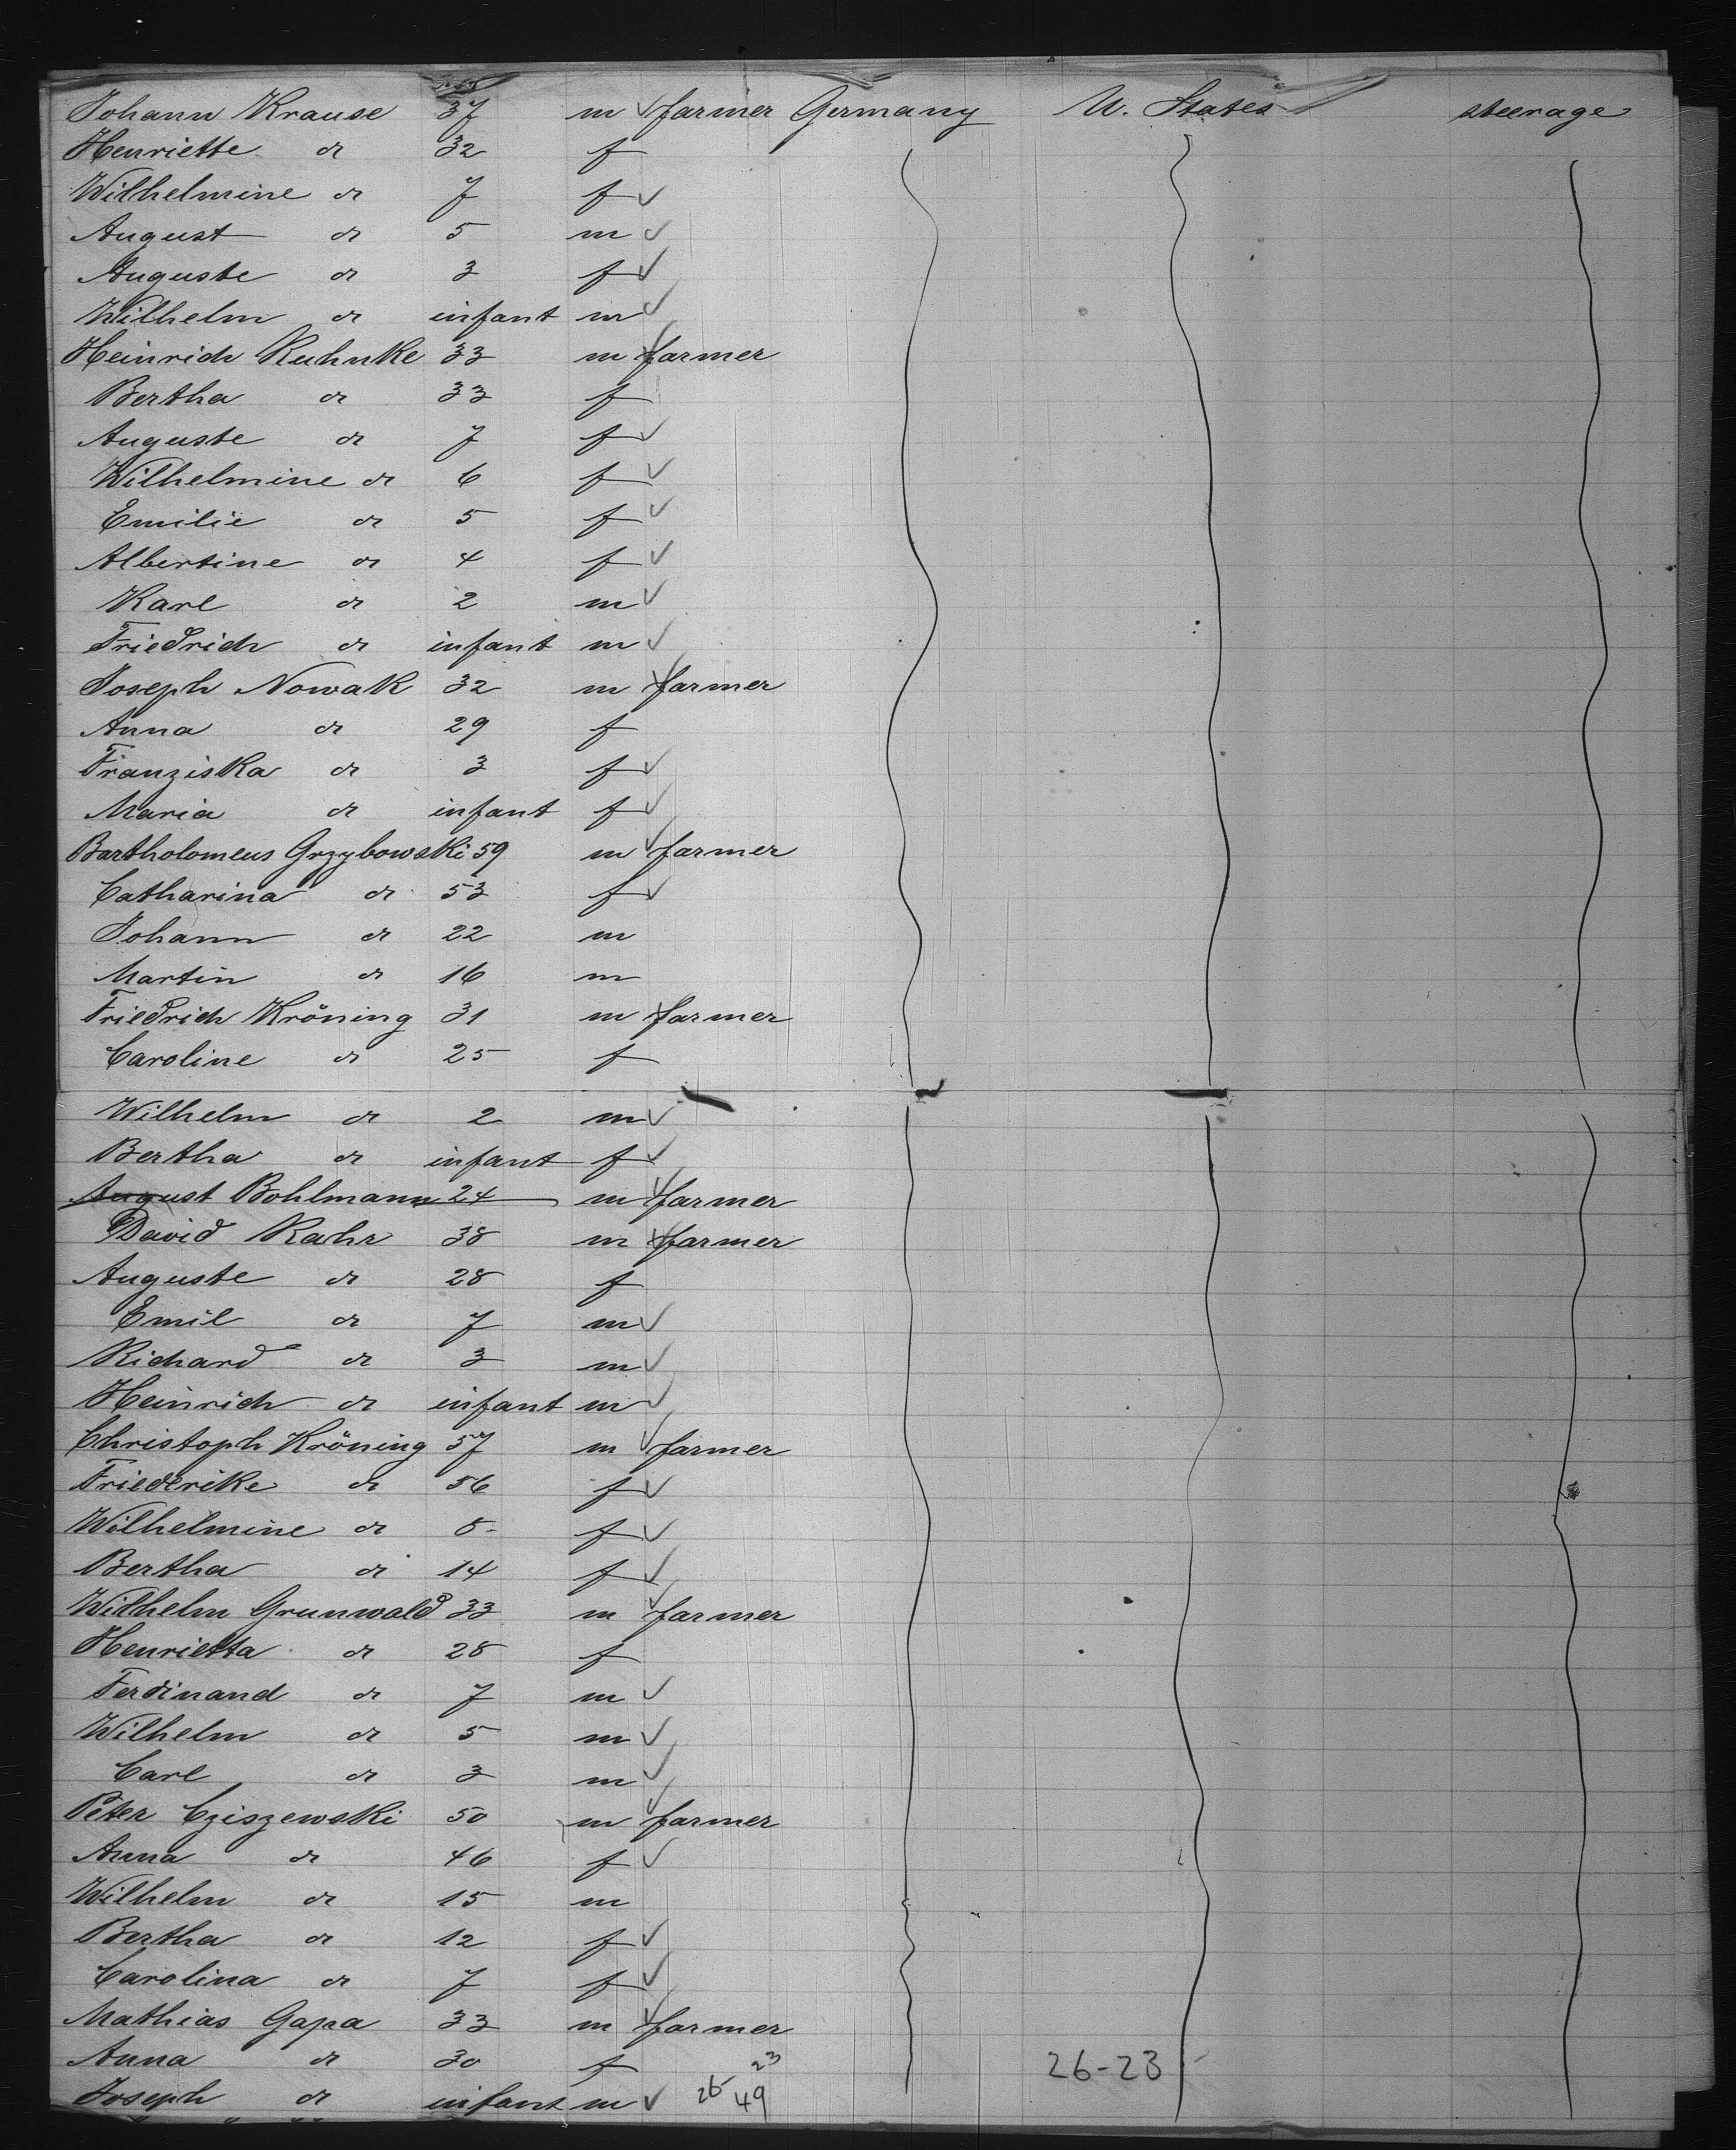 Johann Krause 37 m ✓ farmer Germany U. States steerage
Henriette do 32 f
Wilhelmine do 7 f ✓
August do 5 m ✓
Auguste do 3 f ✓
Wilhelm do infant m ✓
Heinrich Kuhnke 33 m ✓ farmer
Bertha do 33 f
Auguste do 7 f ✓
Wilhelmine do 6 f ✓
Emilie do 5 f ✓
Albertine do 4 f ✓
Karl do 2 m ✓
Friedrich do infant m ✓
Joseph Nowak 32 m ✓ farmer
Anna do 29 f
Franziska do 3 f ✓
Maria do infant f ✓
Bartholomeus Grzybowski 59 m ✓ farmer
Catharina do 53 f ✓
Johann do 22 m
Martin do 16 m
Friedrich Kröning 31 m ✓ farmer
Caroline do 25 f
Wilhelm do 2 m ✓
Bertha do infant f ✓
August Bohlmann 24 m ✓ farmer
David Rahr 38 m ✓ farmer
Auguste do 28 f
Emil do 7 m ✓
Richard do 3 m ✓
Heinrich do infant m ✓
Christoph Kröning 57 m ✓ farmer
Friederike do 56 f ✓
Wilhelmine do f ✓
Bertha do 14 f ✓
Wilhelm Grunwald 33 m ✓ farmer
Henrietta do 28 f
Ferdinand do 7 m ✓
Wilhelm do 5 m ✓
Carl do 3 m ✓
Peter Cziszewski 50 m ✓ farmer
Anna do 46 f ✓
Wilhelm do 15 m
Bertha do 12 f ✓
Carolina do 7 f ✓
Mathias Gapa 33 m ✓ farmer
Anna do 30 f 23 26-23
Joseph do infant m ✓ 26 49